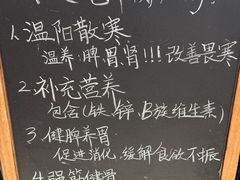 1.温阳散寒
温养:脾胃肾!!!改善畏寒
2.补充营养
包含(铁/锌/B族维生素)
3.健脾养胃
促进消化,缓解食欲不振
4.强筋健骨